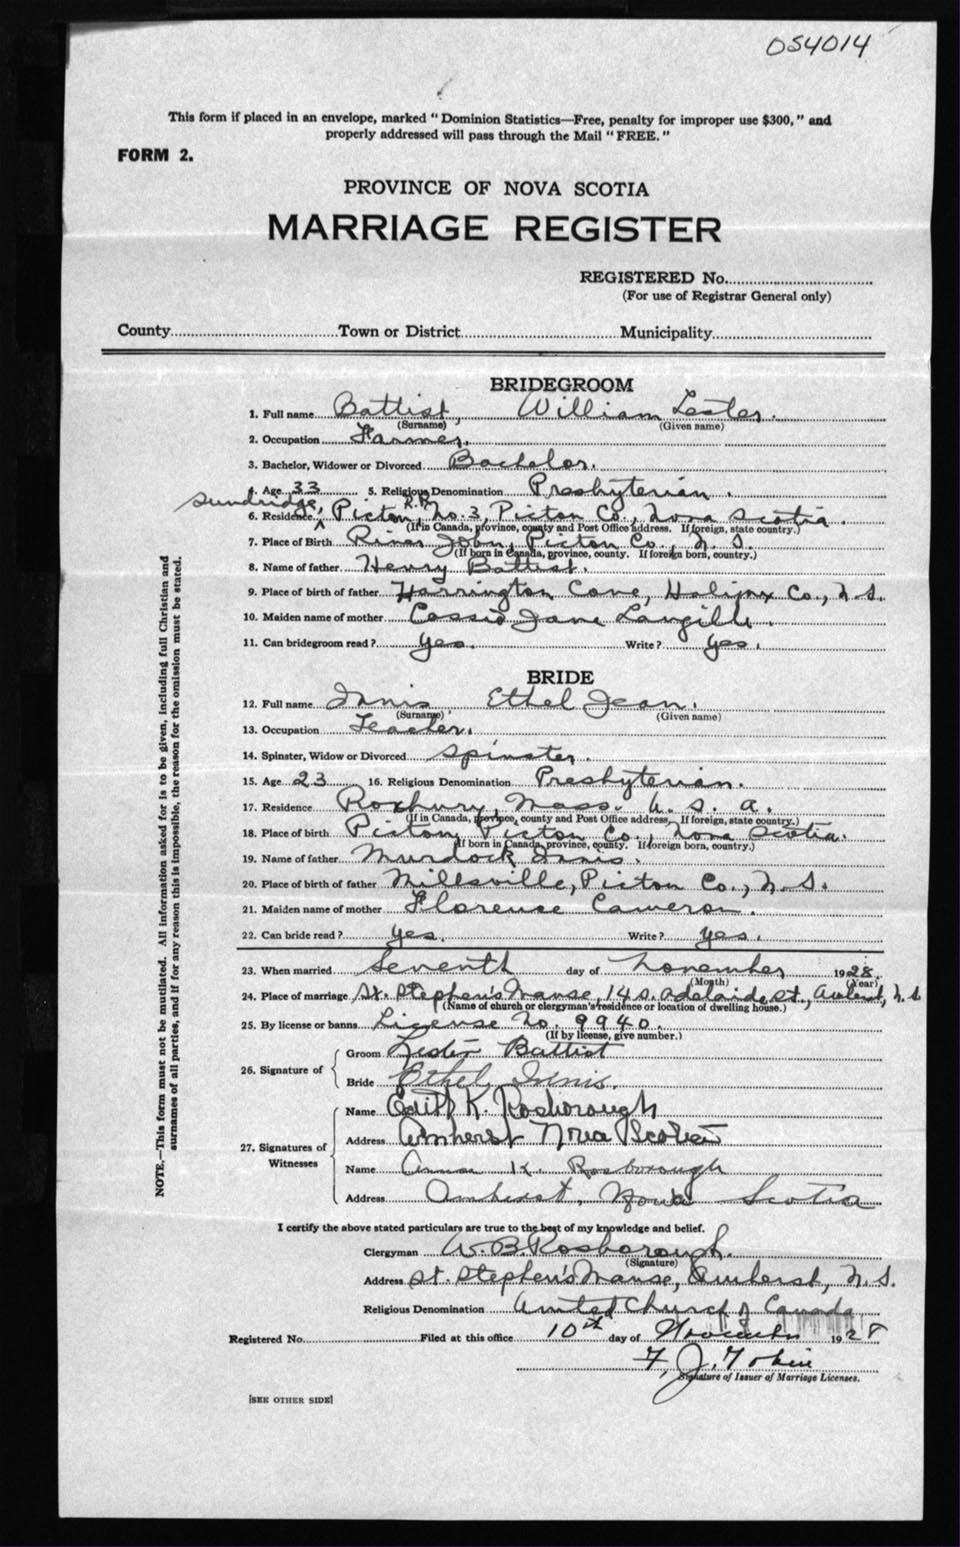 054014
This form if placed in an envelope, marked "Dominion Statistics—Free, penalty for improper use $300," and
properly addressed will pass through the Mail "FREE."
FORM 2.
PROVINCE OF NOVA SCOTIA
MARRIAGE REGISTER
REGISTERED No.
(For use of Registrar General only)
County Town or District Municipality
BRIDEGROOM
1. Full name Battist, William Lester.
(Surname) (Given name)
2. Occupation Farmer.
3. Bachelor, Widower or Divorced Bachelor.
4. Age 33 5. Religious Denomination Presbyterian.
Sundridge, R.R.
6. Residence Pictou, No. 3, Pictou Co., Nova Scotia.
(If in Canada, province, county and Post Office address. If foreign, state country.)
7. Place of Birth River John, Pictou Co., N.S.
(If born in Canada, province, county. If foreign born, country.)
8. Name of father Henry Battist.
9. Place of birth of father Harrington Cove, Halifax Co., N.S.
10. Maiden name of mother Cassie Jane Langille.
11. Can bridegroom read? Yes. Write? Yes.
BRIDE
12. Full name Innis Ethel Jean.
(Surname) (Given name)
13. Occupation Teacher.
14. Spinster, Widow or Divorced Spinster.
15. Age 23 16. Religious Denomination Presbyterian.
17. Residence Roxbury, Mass. U.S.A.
(If in Canada, province, county and Post Office address, If foreign, state country.)
18. Place of birth Pictou, Pictou Co., Nova Scotia.
(If born in Canada, province, county. If foreign born, country.)
19. Name of father Murdock Innis.
20. Place of birth of father Millsville, Pictou Co., N.S.
21. Maiden name of mother Florence Cameron.
22. Can bride read? Yes. Write? Yes.
23. When married Seventh day of November 1928.
(Month) (Year)
24. Place of marriage St. Stephen's Manse, 14 S. Adelaide St., Amherst, N.S.
(Name of church or clergyman's residence or location of dwelling house.)
25. By license or banns License No. 9940.
(If by license, give number.)
26. Signature of
Groom Lester Battist
Bride Ethel Innis.
27. Signatures of Witnesses
Name Edith K. Rosborough
Address Amherst Nova Scotia
Name Anna K. Rosborough
Address Amherst, Nova Scotia
I certify the above stated particulars are true to the best of my knowledge and belief.
Clergyman W. B. Rosborough.
(Signature)
Address St. Stephen's Manse, Amherst, N.S.
Religious Denomination United Church of Canada
Registered No. Filed at this office 10th day of November 1928
F. J. Tobin
Signature of Issuer of Marriage Licenses.
[SEE OTHER SIDE]
NOTE.—This form must not be mutilated. All information asked for is to be given, including full Christian and
surnames of all parties, and if for any reason this is impossible, the reason for the omission must be stated.